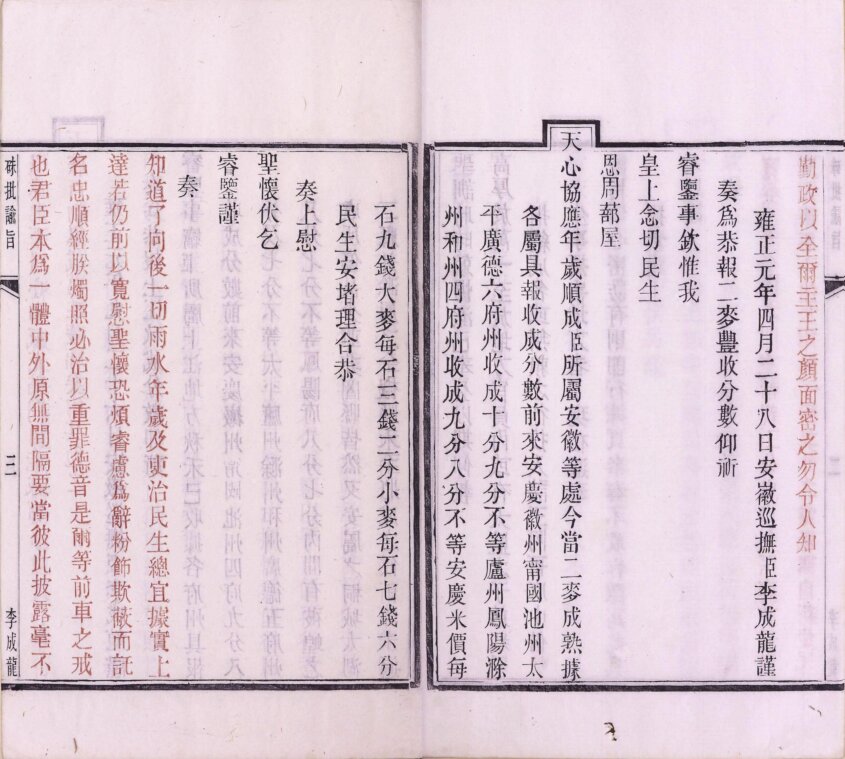 勤政以全爾主王之顏面密之勿令人知
雍正元年四月二十八日安徽巡撫臣李成龍謹
奏爲恭報二麥豐收分數仰祈
睿鑒事欽惟我
皇上念切民生
恩周蔀屋
天心協應年歲順成臣所屬安徽等處今當二麥成熟據
各屬具報收成分數前來安慶徽州甯國池州太
平廣德六府州收成十分九分不等廬州鳳陽滁
州和州四府州收成九分八分不等安慶米價每
石九錢大麥每石三錢二分小麥每石七錢六分
民生安堵理合恭
奏上慰
聖懷伏乞
睿鑒謹
奏
知道了向後一切雨水年歲及吏治民生總宜據實上
達若仍前以寬慰聖懷恐煩睿慮爲辭粉飾欺蔽而託
名忠順經朕燭照必治以重罪德音是爾等前車之戒
也君臣本爲一體中外原無間隔要當彼此披露毫不
硃批諭旨
三
李成龍